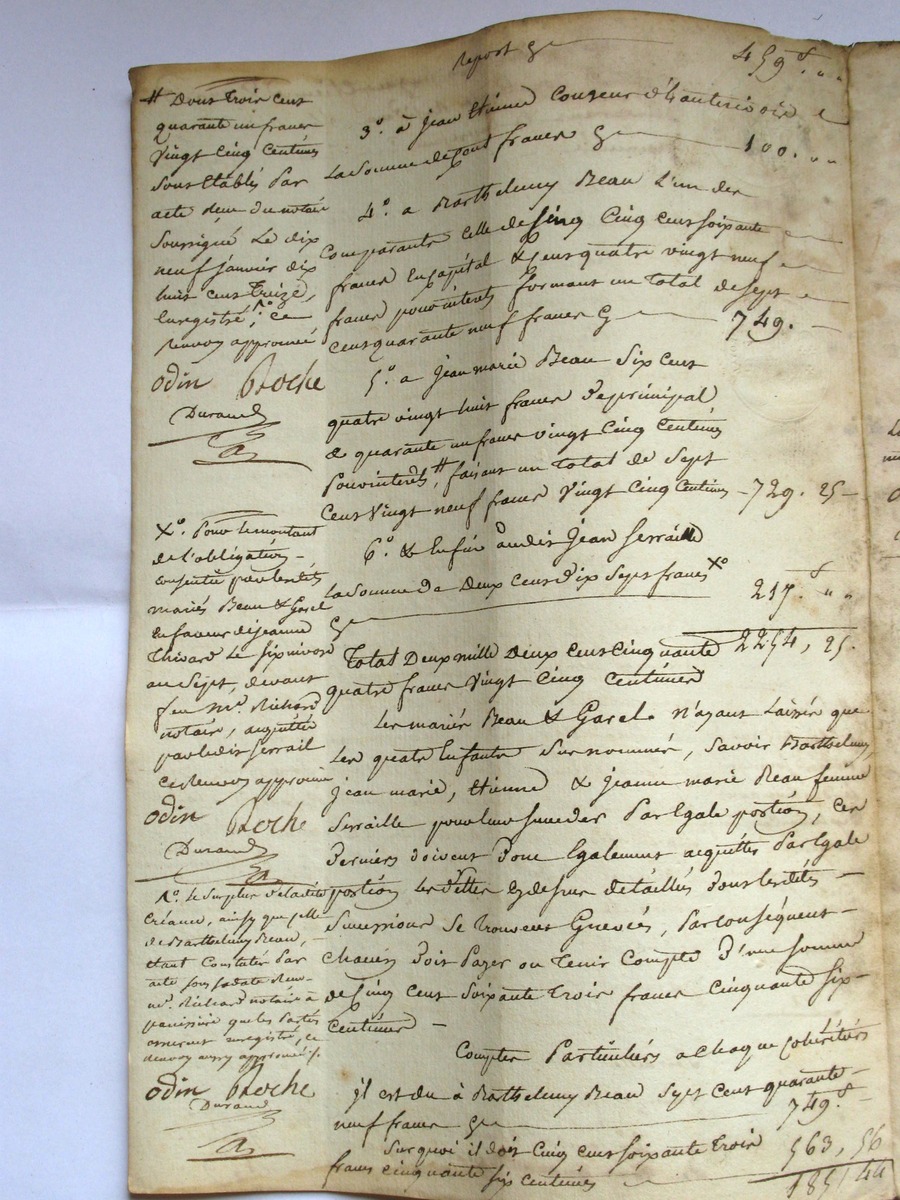 report 459. " "
3.° à jean Etienne Couzeur d'hauterivoire
La Somme de Cent francs 100. " "
4.° a Barthelemy Beau L'un des
Comparants celle de Cinq Cent soixante
francs En capital & Cent quatre vingt neuf
francs pour interets formant un Total de Sept
Cent quarante neuf francs 749. —
5.° a jean marie Beau Six Cent
quatre vingt huit francs de principal
& quarante un francs vingt Cinq Centimes
Pour interets #, faisant un Total de Sept
Cent Vingt neuf francs Vingt Cinq Centimes - 729. 25 -
6.° & Enfin audit jean Serraille
La Somme de Deux cent dix Sept francs X° 217. " "
Total Deux mille Deux Cent Cinquante 2254, 25.
quatre francs Vingt Cinq Centimes
Les mariés Beau & Garel. N'ayant Laissé que
Les quatre Enfants Sus nommés, Savoir Barthelemy,
jean marie, Etienne & jeanne marie Beau femme
Serraille pour leur succeder Par Egale portion, Ces
Derniers doivent Donc Egalement acquitter Par Egale
portion les dettes Cy dessus detaillés Dont les dites
Successions Se trouvent Grevées, Par Conséquent
Chacun Doit Payer ou Tenir Compte D'une somme
de Cinq Cent Soixante Trois francs Cinquante Six
Centimes -
Comptes Particuliers a chaque Cohéritiers
il est du à Barthelemy Beau Sept Cent quarante
neuf francs 749.
Sur quoi il doit Cinq Cent Soixante Trois
francs cinquante six centimes 563, 56
185, 44
# Dont Trois Cent
quarante un francs
Vingt Cinq Centimes
Sont Etablis Par
acte reçu du notaire
Soussigné Le dix
neuf janvier dix
huit Cent Treize,
Enregistré, ce
Renvoi approuvé
odin Broche
Durand
X°. Pour le montant
de l'obligation
consentie par les dits
mariés Beau & Garel
En faveur de jeanne
Thivard Le six nivose
an Sept, devant
feu M.e Richard
notaire, acquittée
par le dit Serrail
ce Renvoi approuvé
odin Broche
Durand
Le Surplus de la dite
Créance, ainsy que celle
de Barthelemy Beau,
étant Constatés Par
acte sous sa date Reçu
M.e Richard notaire à
que les Parties
enregistré, ce
Renvoy aussy approuvé
odin Broche
Durand